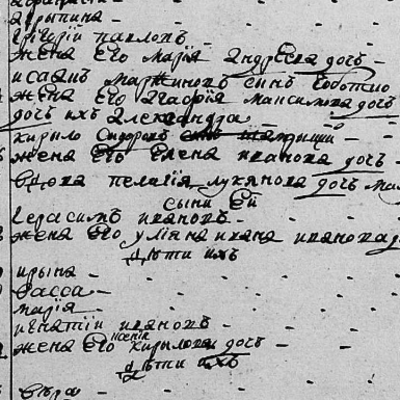 агрыпина
григорїи павловъ
жена его марїя андреева дочь
исаакъ мартиновъ сынъ
жена его агафїя максимова дочь
дочь ихъ александра
кирило сидоровъ
жена его елена иванова дочь
вдова пелагїя лукянова дочь
сыни ей
герасимъ ивановъ
жена его улїяна ивана иванова
дѣти ихъ
ирына
васса
марїя
игнатїи ивановъ
жена его ксенїя кирылова дочь
дѣти ихъ
вѣра